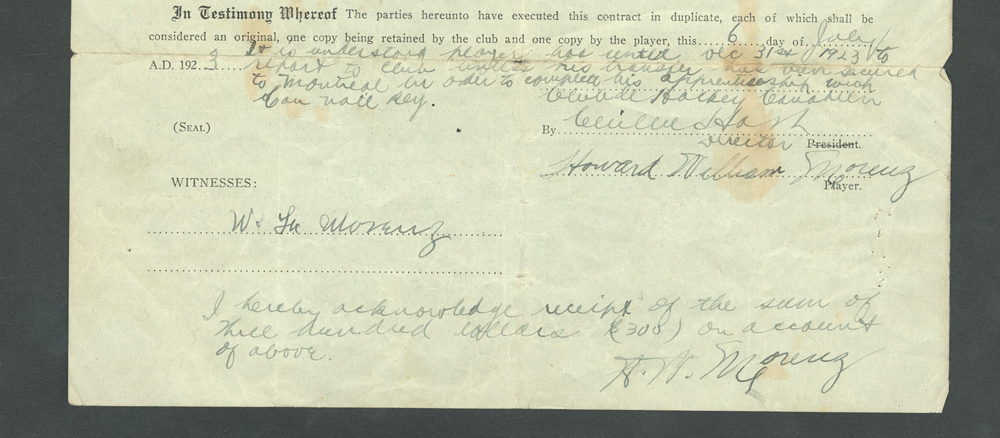 In Testimony Whereof The parties hereunto have executed this contract in duplicate, each of which shall
considered an original, one copy being retained by the club and one copy by the player, this 6 day of July
A.D. 1923
It is understood player has until Dec 31st 1923 to
report to Club unless his transfer has been secured
to Montreal in order to complete his apprenticeship with
Can Rly.
Club de Hockey Canadien
(SEAL)
By
Director President.
Howard William Morenz
Player.
WITNESSES:
W. Morenz
I hereby acknowledge receipt of the sum of
three hundred dollars ($300) on account
of above.
H. W. Morenz